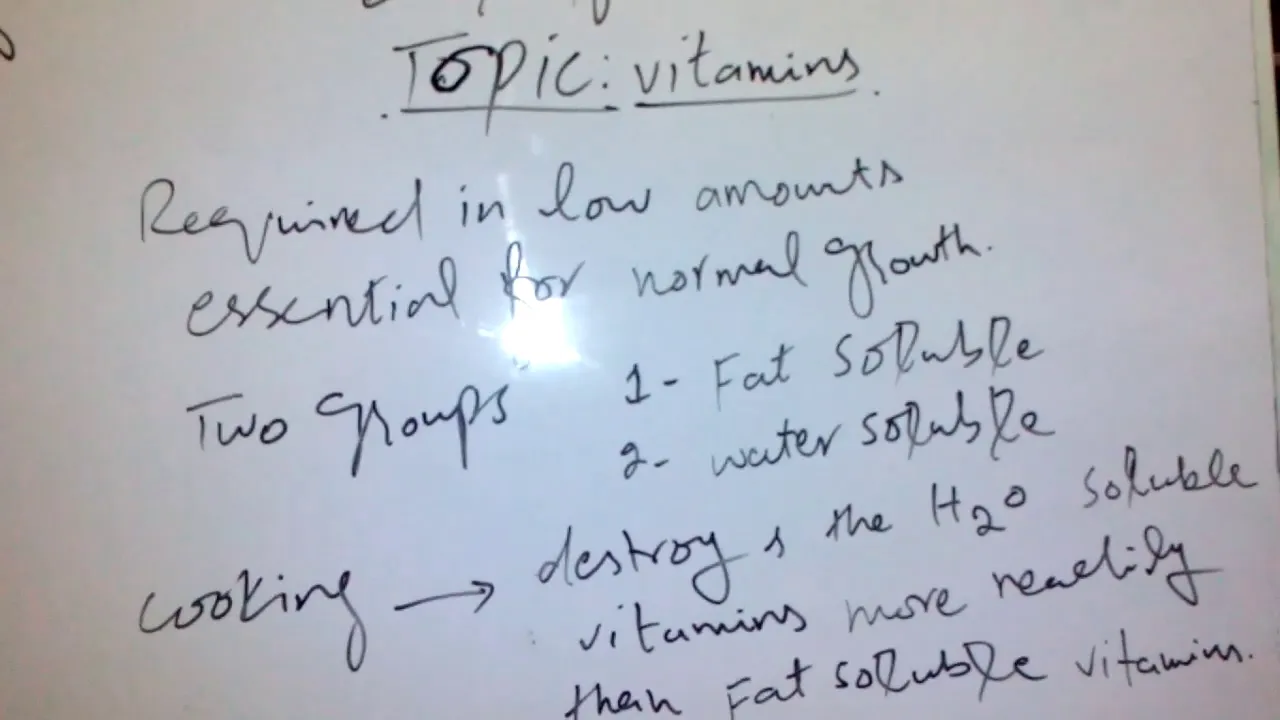 Topic: vitamins.
Required in low amounts
essential for normal growth.
Two Groups 1- Fat soluble
2- water soluble
cooking → destroys the H2O soluble
vitamins more readily
than Fat soluble vitamins.